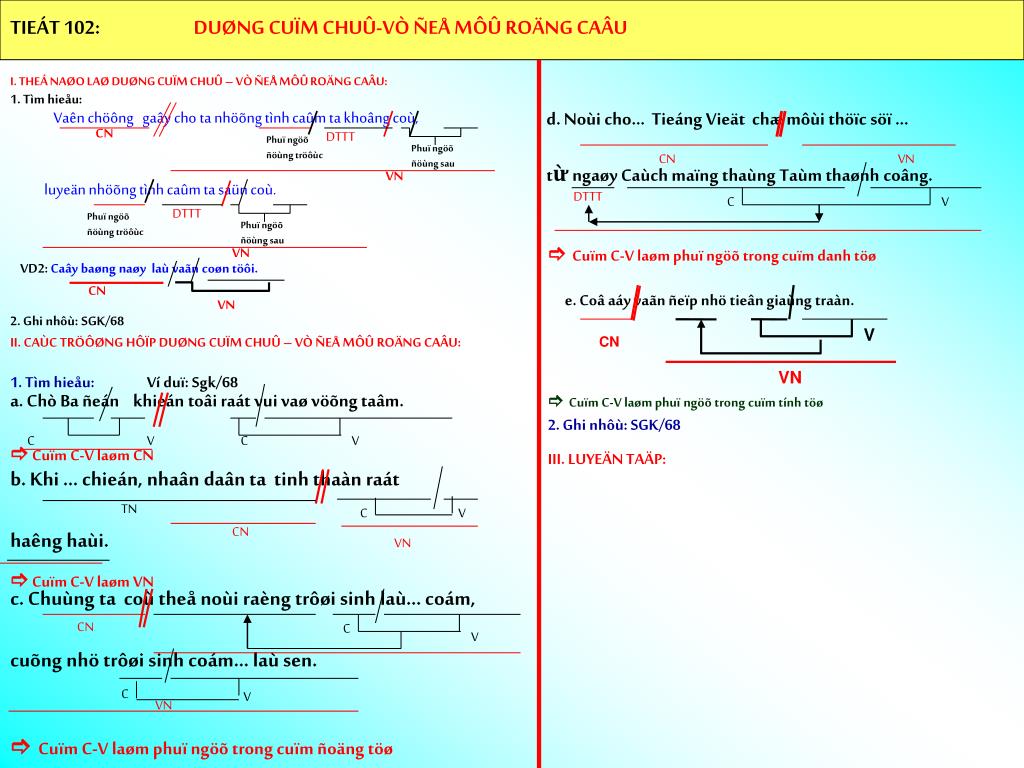 TIEÁT 102: DUØNG CUÏM CHUÛ-VÒ ÑEÅ MÔÛ ROÄNG CAÂU
I. THEÁ NAØO LAØ DUØNG CUÏM CHUÛ – VÒ ÑEÅ MÔÛ ROÄNG CAÂU:
1. Tìm hieåu:
Vaên chöông gaây cho ta nhöõng tình caûm ta khoâng coù,
CN
Phuï ngöõ ñöùng tröôùc
DTTT
Phuï ngöõ ñöùng sau
VN
luyeän nhöõng tình caûm ta saün coù.
Phuï ngöõ ñöùng tröôùc
DTTT
Phuï ngöõ ñöùng sau
VN
VD2: Caây baøng naøy laù vaãn coøn töôi.
CN
VN
2. Ghi nhôù: SGK/68
II. CAÙC TRÖÔØNG HÔÏP DUØNG CUÏM CHUÛ – VÒ ÑEÅ MÔÛ ROÄNG CAÂU:
1. Tìm hieåu: Ví duï: Sgk/68
a. Chò Ba ñeán khieán toâi raát vui vaø vöõng taâm.
C V C V
⇨ Cuïm C-V laøm CN
b. Khi ... chieán, nhaân daân ta tinh thaàn raát
TN C V
CN VN
haêng haùi.
⇨ Cuïm C-V laøm VN
c. Chuùng ta coù theå noùi raèng trôøi sinh laù... coám,
CN C V
cuõng nhö trôøi sinh coám... laù sen.
C V
VN
⇨ Cuïm C-V laøm phuï ngöõ trong cuïm ñoäng töø
d. Noùi cho... Tieáng Vieät chæ môùi thöïc söï ...
CN VN
từ ngaøy Caùch maïng thaùng Taùm thaønh coâng.
DTTT C V
⇨ Cuïm C-V laøm phuï ngöõ trong cuïm danh töø
e. Coâ aáy vaãn ñeïp nhö tieân giaùng traàn.
CN V
VN
⇨ Cuïm C-V laøm phuï ngöõ trong cuïm tính töø
2. Ghi nhôù: SGK/68
III. LUYEÄN TAÄP: